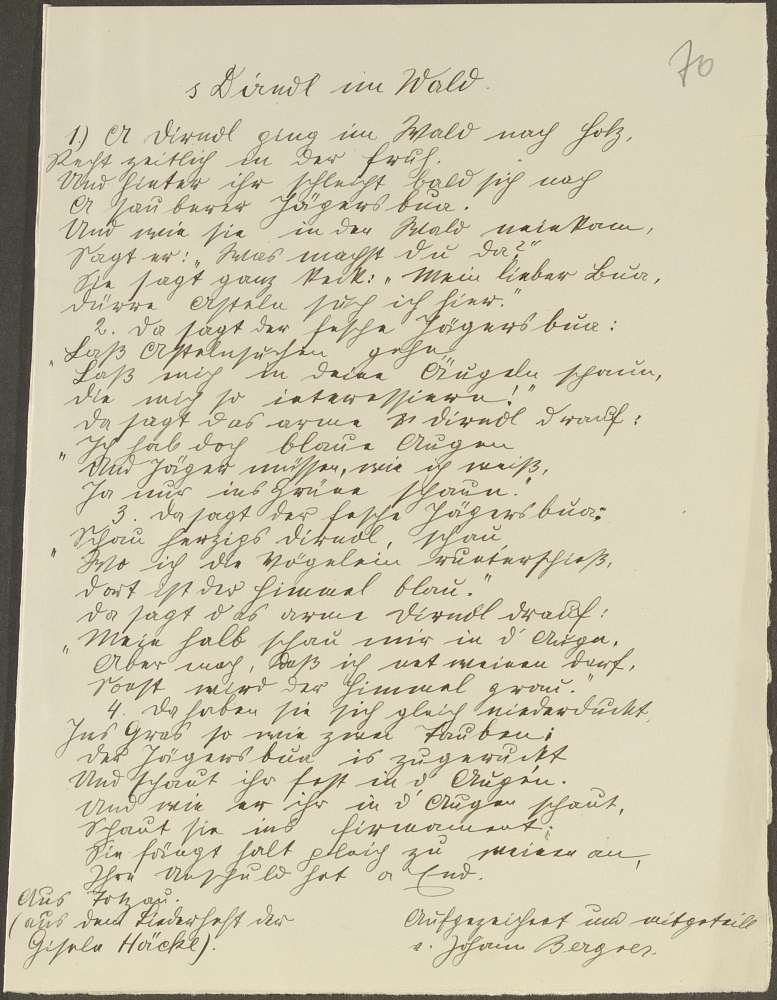 70
s Dirndl im Wald.
1.) A Dirndl ging im Wald nach Holz,
Recht zeitlich in der Früh.
Und hinter ihr schleicht bald sich nach
A sauberer Jägersbua.
Und wie sie in den Wald neinkam,
Sagt er: „Was machst du da?"
Sie sagt ganz keck: „Mein lieber Bua,
Dürre Asteln such ich hier."
2. Da sagt der fesche Jägersbua:
„Laß Astelnsuchen gehn
Laß mich in deine Äugeln schaun,
Die mich so interessiern!"
Da sagt das arme Dirndl drauf:
„Ich hab doch blaue Augen
Und Jäger müssen, wie ich weiß,
Ja nur ins Grüne schaun."
3. Da sagt der fesche Jägersbua:
Schau herzigs Dirndl, schau,
„Wo ich die Vögelein runterschieß,
Dort ist der Himmel blau."
Da sagt das arme Dirndl drauf:
„Mein halb schau mir in d' Augn,
Aber mach, daß ich net weinen darf,
Sonst wird der Himmel grau."
4. Da haben sie sich gleich niederduckt,
Ins Gras so wie zwei Tauben;
Der Jägersbua is zugeruckt
Und schaut ihr fest in d' Augen.
Und wie er ihr in d' Augen schaut,
Schaut sie ins Firmament;
Sie fängt halt gleich zu weinen an,
Ihre Unschuld hat a End.
Aus Totzau.
(aus dem Liederheft der
Gisela Häckl).
Aufgezeichnet und mitgeteilt
v. Johann Bergner.